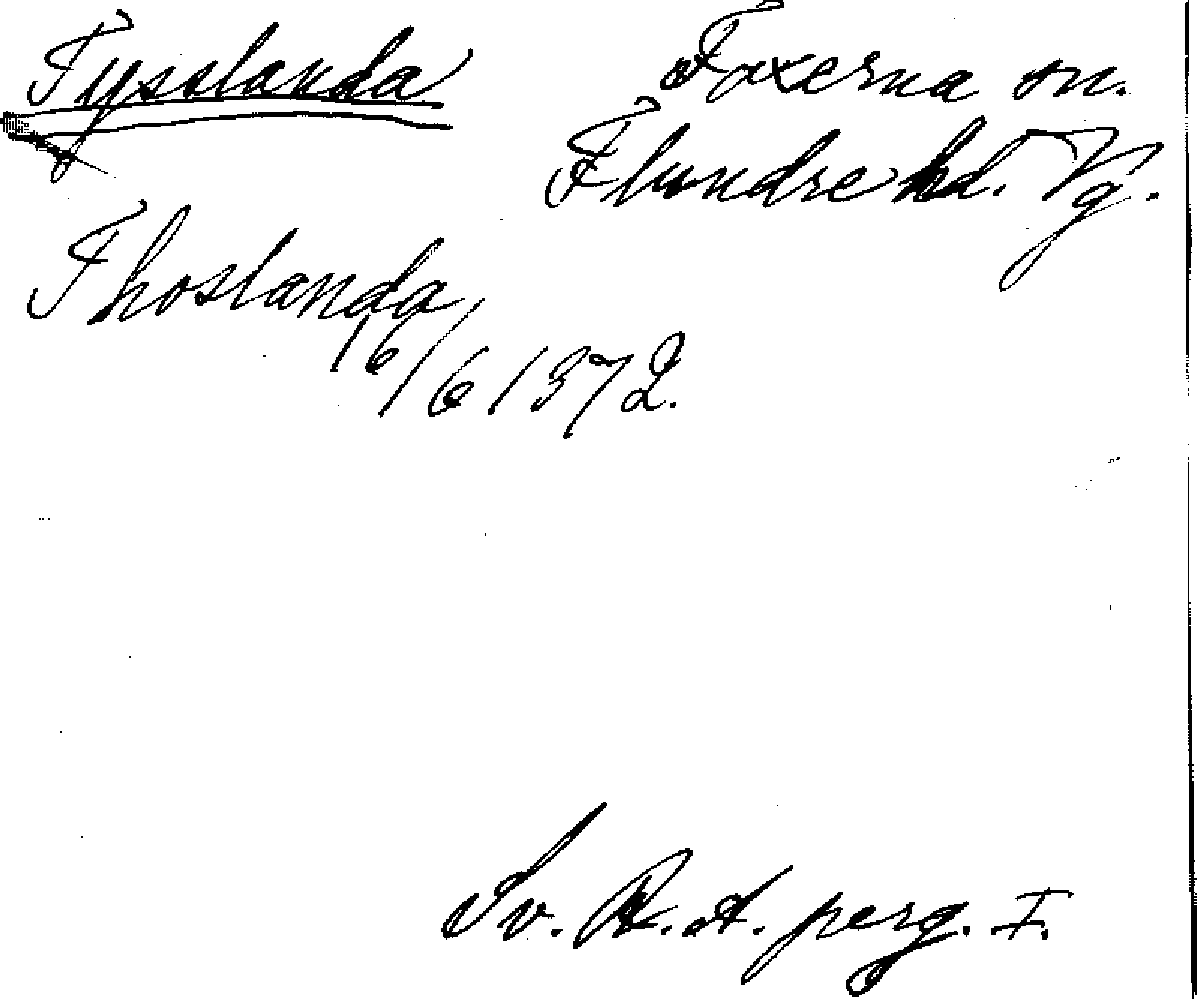 Tysslanda
Foxerna sn.
Flundre hd. Vg.
Thoslanda,
16/6 1372.
Sv. R. A. perg. I.